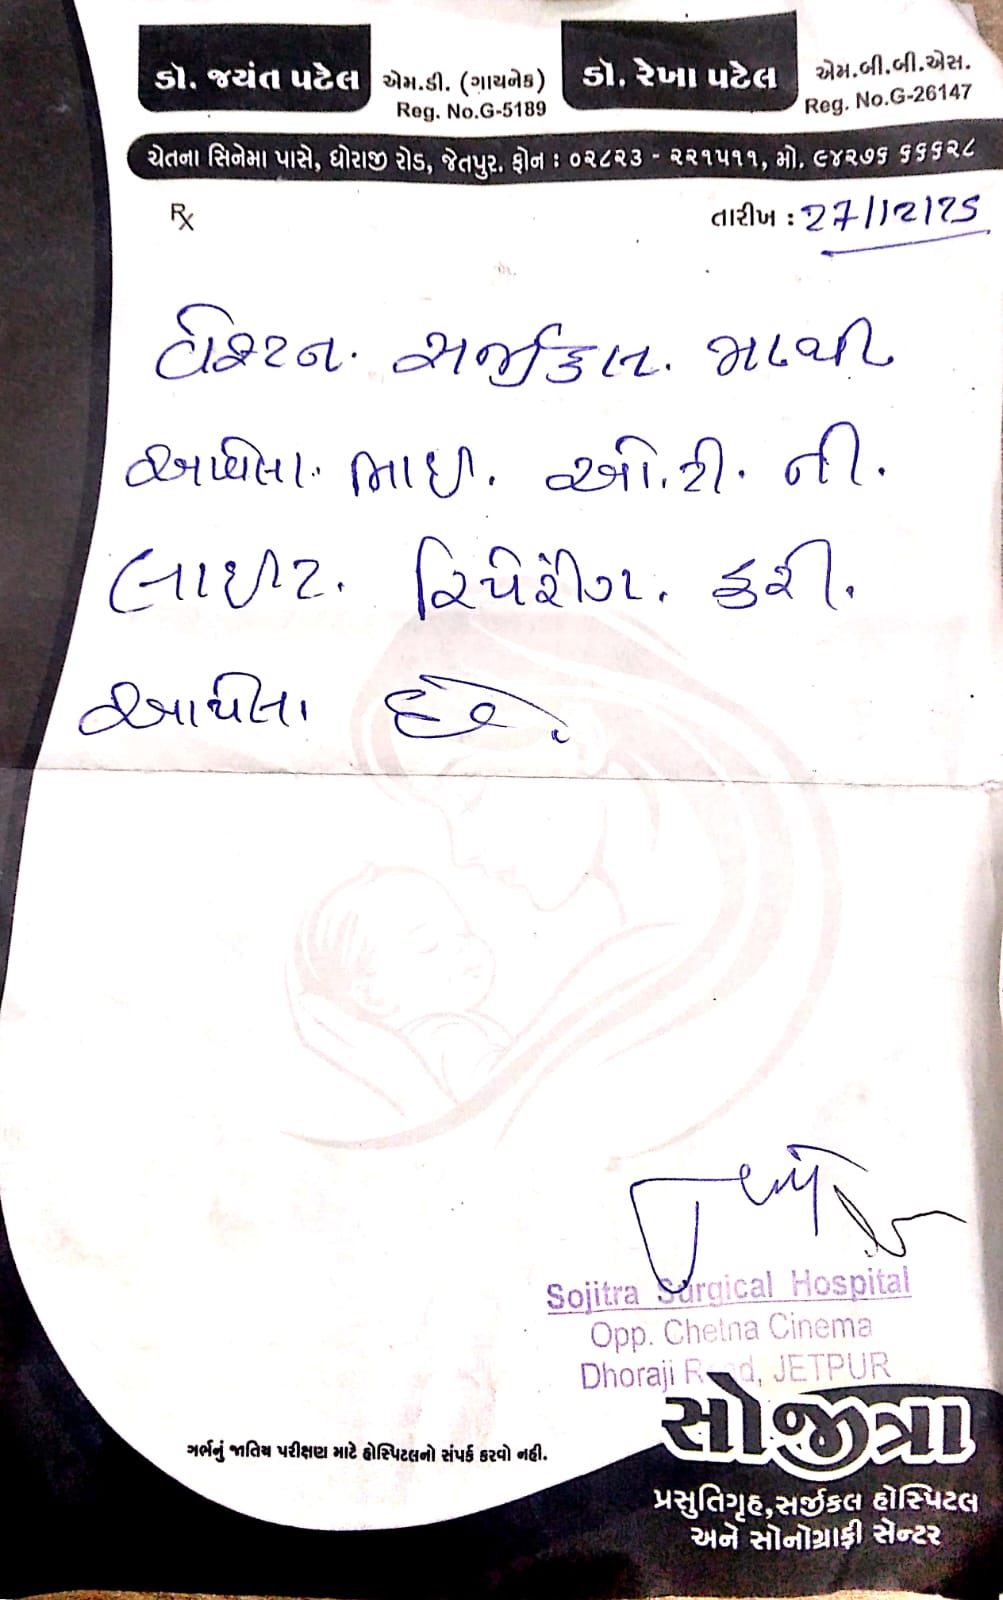 ડૉ. જયંત પટેલ એમ.ડી. (ગાયનેક) ડૉ. રેખા પટેલ એમ.બી.બી.એસ.
Reg. No.G-5189 Reg. No.G-26147
ચેતના સિનેમા પાસે, ધોરાજી રોડ, જેતપુર. ફોન : ૦૨૮૨૩ - ૨૨૧૫૧૧, મો. ૯૪૨૭૬ ૬૬૬૨૮
℞ તારીખ : 27/12/25
સર્જીકલ.
આપેલા. ભાઇ. ઓ.ટી. ની.
લાઇટ. રિપેરીંગ. કરી.
આપેલા છે.
Sojitra Surgical Hospital
Opp. Chetna Cinema
Dhoraji Road, JETPUR
સોજીત્રા
ગર્ભનું જાતિય પરીક્ષણ માટે હોસ્પિટલનો સંપર્ક કરવો નહી.
પ્રસુતિગૃહ,સર્જીકલ હોસ્પિટલ
અને સોનોગ્રાફી સેન્ટર